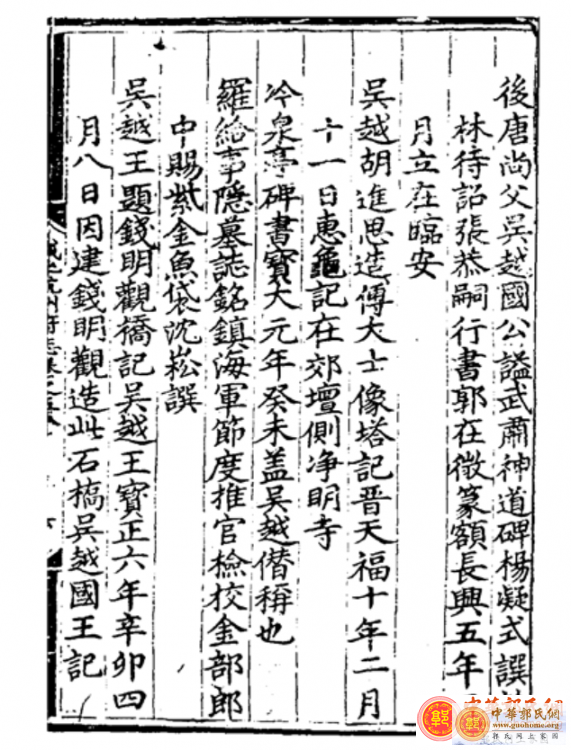 後唐尚父吳越國公謚武肅神道碑楊凝式譔
林待詔張恭嗣行書郭在徵篆額長興五年
月立在臨安
吳越胡進思造傅大士像塔記晉天福十年二月
十一日惠龜記在郊壇側净明寺
冷泉亭碑書寶大元年癸未盖吳越僣稱也
羅給事隱墓誌銘鎮海軍節度推官檢校金部郎
中賜紫金魚袋沈崧譔
吳越王題錢明觀橋記吳越王寶正六年辛卯四
月八日因建錢明觀造此石橋吳越國王記
中華郭氏網
www.guohome.org
郭氏网上家园